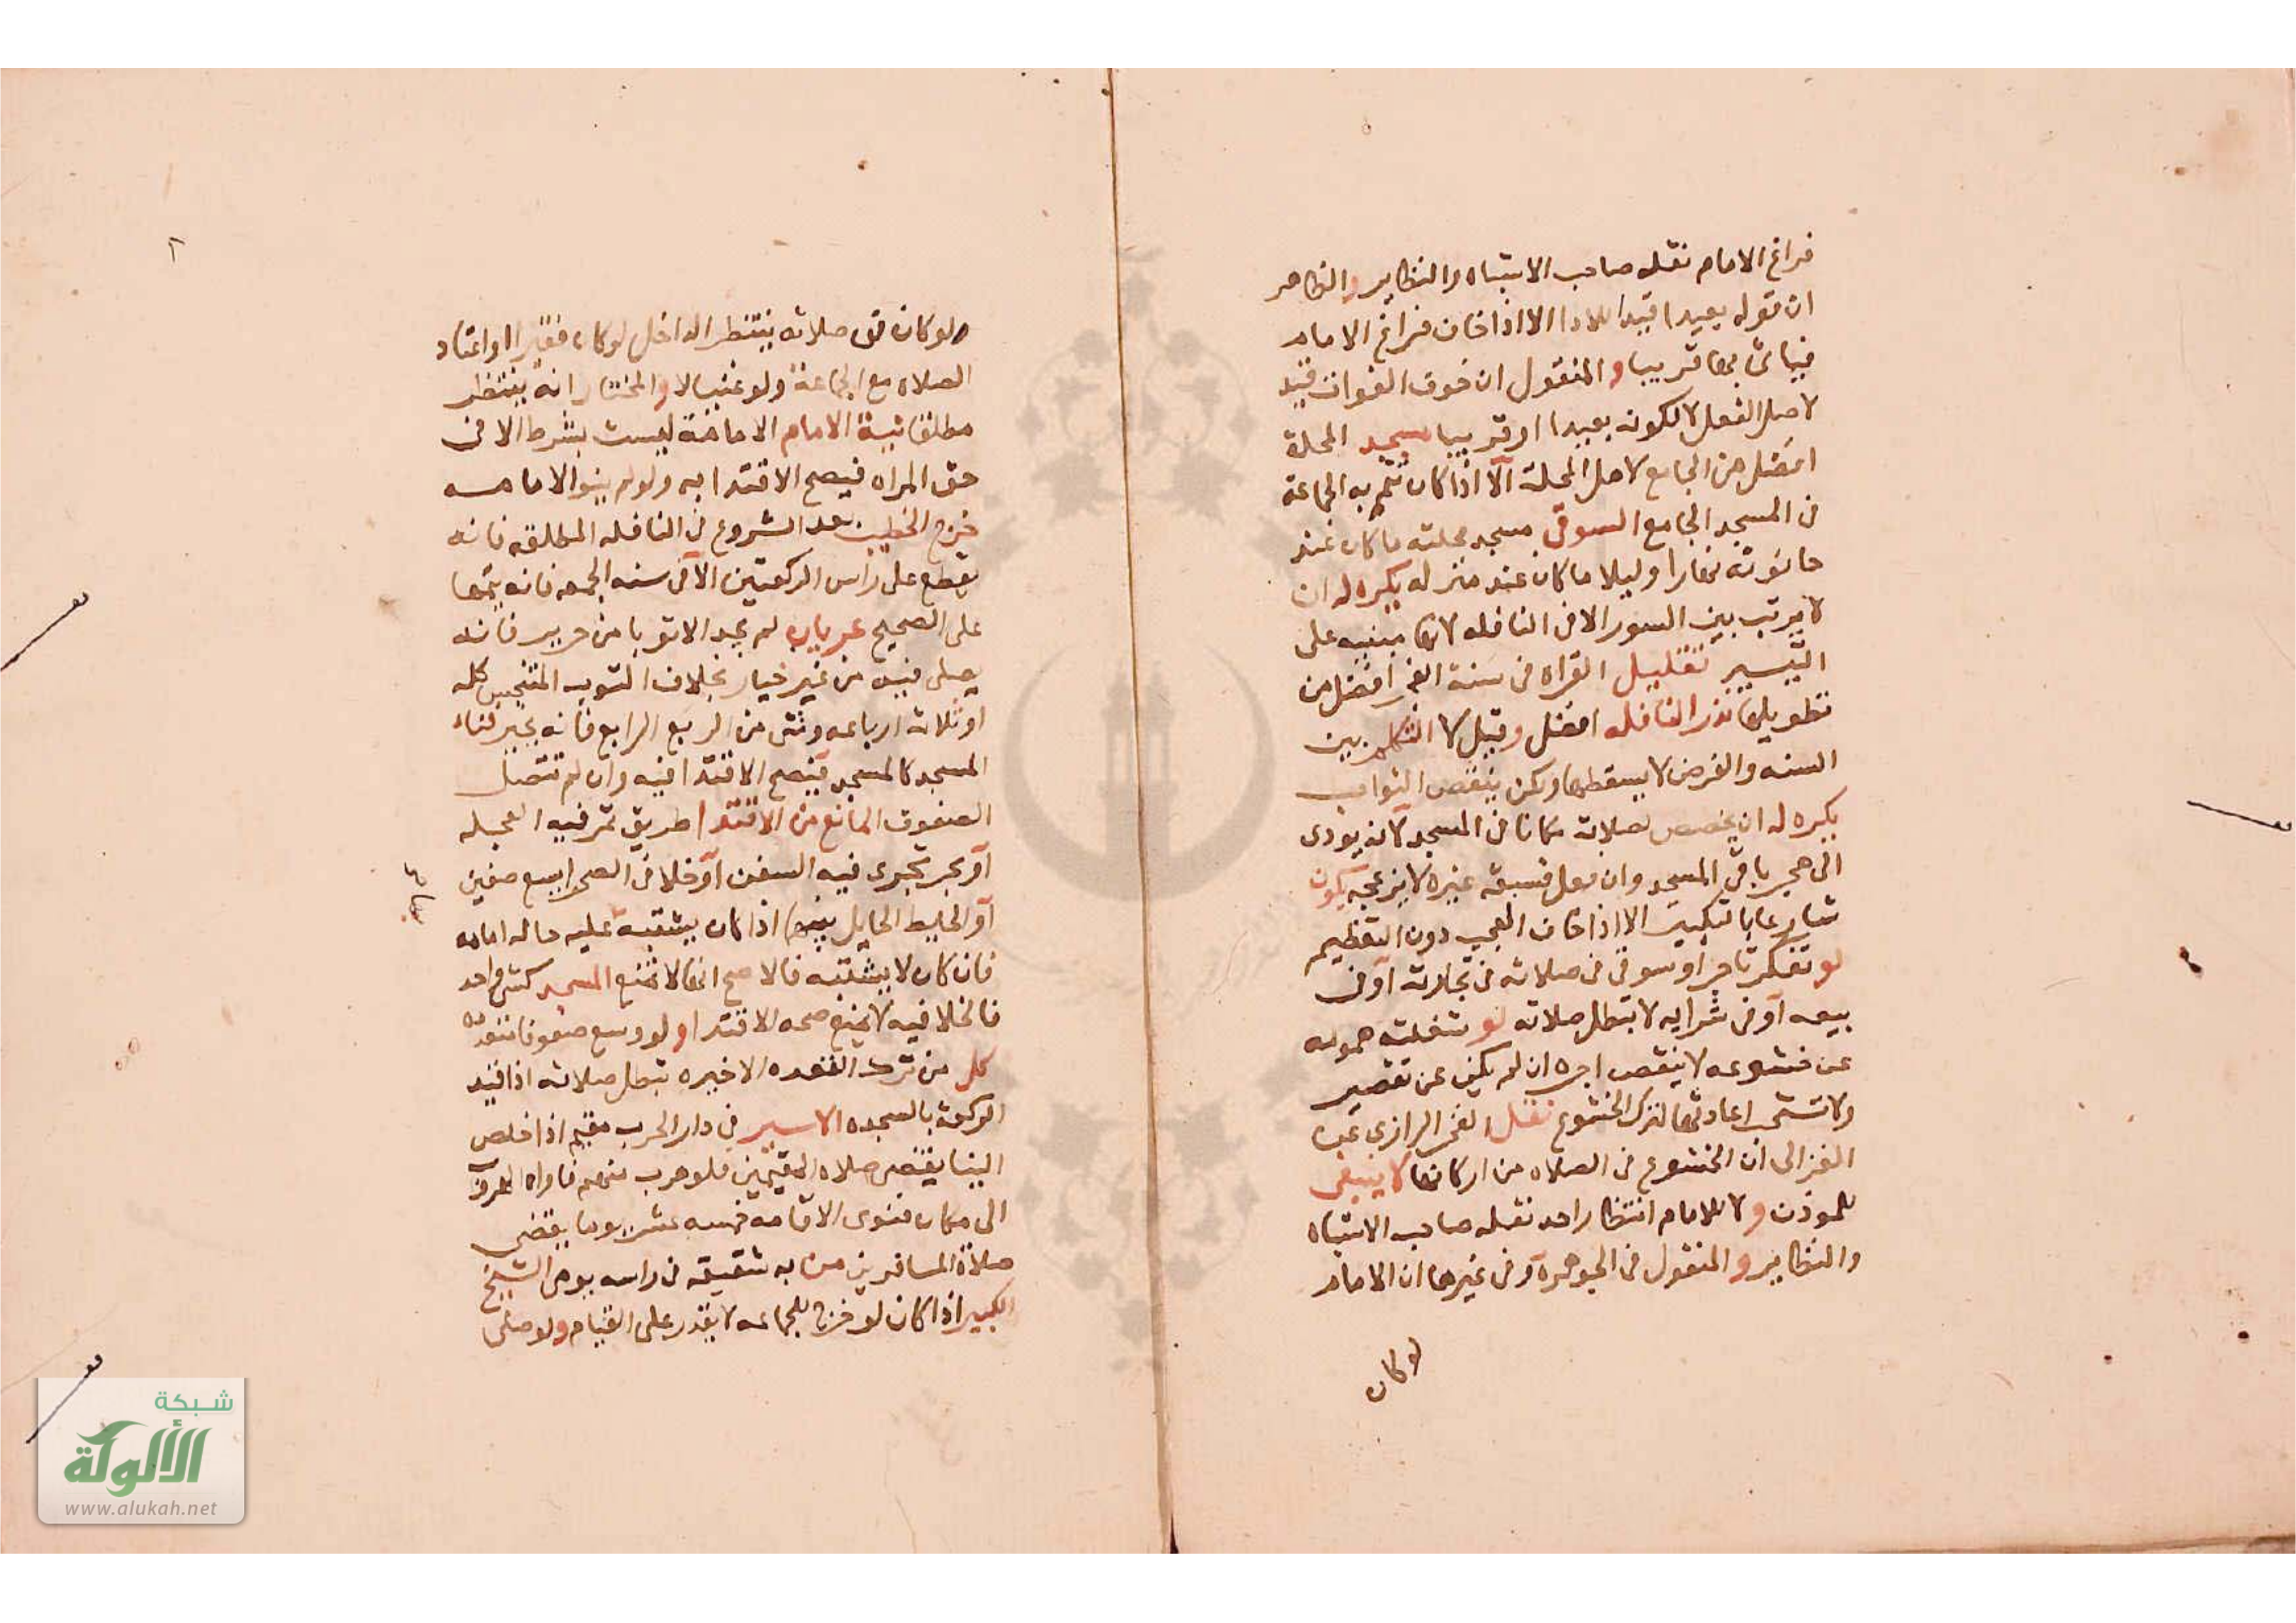 فراغ الامام نقله صاحب الاشباه والنظاير والظاهر
ان قوله بعيدا قيد للاداء الا اذا خاف فراغ الامام
فياتى بها قريبا والمنقول ان خوف الفوات قيد
لاصل الفعل لا لكونه بعيدا او قريبا مسجد المحلة
افضل من الجامع لاهل المحلة الا اذا كان تتم به الجماعة
فى المسجد الجامع السوقى مسجد محلته ما كان عند
حانوته نهارا وليلا ما كان عند منزله يكره له ان
لا يرتب بين السور الا فى النافله لانها مبنيه على
التيسير تقليل القراه فى سنة الفجر افضل من
تطويلها نذر النافله افضل وقيل لا التكلم بين
السنه والفرض لا يسقطها ولكن ينقص الثواب
يكره له ان يخصص لصلاته مكانا فى المسجد لانه يودى
الى هجر باقى المسجد وان فعل فسبقه غيره لا يزعجه يكون
شارعا بالتكبير الا اذا خاف العجب دون التعظيم
لو تفكر تاجر او سوقى فى صلاته فى تجارته او فى
بيعه او فى شرايه لا تبطل صلاته لو شغلته همومه
عن خشوعه لا ينقص اجره ان لم يكن عن تقصير
ولا تستحب اعادتها لترك الخشوع نقل الفخر الرازى عن
الغزالى ان الخشوع فى الصلاه من اركانها لا ينبغى
للموذن ولا للامام انتظار احد نقله صاحب الاشباه
والنظاير والمنقول فى الجوهرة وفى غيرها ان الامام
لو كان
٦
ولو كان فى صلاته ينتظر الداخل لو كان فقيرا او اعتاد
الصلاه مع الجماعة ولو غنيا لا والمختار انه ينتظر
مطلقا نية الامام الامامة ليست بشرط الا فى
حق المراه فيصح الاقتدا به ولو لم ينو الامامه
خرج الخطيب بعد الشروع فى النافله المطلقه فانه
يقطع على راس الركعتين الا فى سنه الجمعه فانه يتمها
على الصحيح عريان لم يجد الا ثوبا من حرير فانه
يصلى فيه من غير خيار بخلاف الثوب المتنجس كله
او ثلاثه ارباعه وشى من الربع الرابع فانه يخير فناء
المسجد كالمسجد فيصح الاقتدا فيه وان لم تتصل
الصفوف المانع من الاقتدا طريق تمر فيه العجله
او بحر تجرى فيه السفن او خلا فى الصحرا يسع صفين
او الحايط الحايل بينهما اذا كان يشتبه عليه حاله امامه
فان كان لا يشتبه فالاصح انها لا تمنع المسجد كشى واحد
فالخلا فيه لا يمنع صحه الاقتدا ولو وسع صفوفا متعدده
كل من ترك القعده الاخيره تبطل صلاته اذا قيد
الركعه بالسجده الاسير فى دار الحرب مقيم اذا خلص
الينا يقضى صلاه المقيمين فلو هرب منهم فاراه الهرب
الى مكان فنوى الاقامه خمسه عشر يوما يقضى
صلاة المسافرين من به شقيقه فى راسه يومى الشيخ
الكبير اذا كان لو خرج للجماعه لا يقدر على القيام ولو صلى
شبكة
الألوكة
www.alukah.net